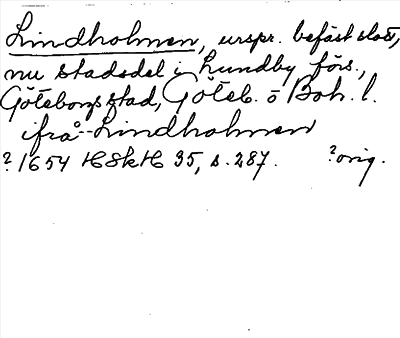 Lindholmen, urspr. befäst slott,
nu stadsdel i Lundby förs.,
Göteborgs stad, Göteb. o Boh. l.
ifrå Lindholmen
? 1654 HSkH 35, s. 287. ? orig.